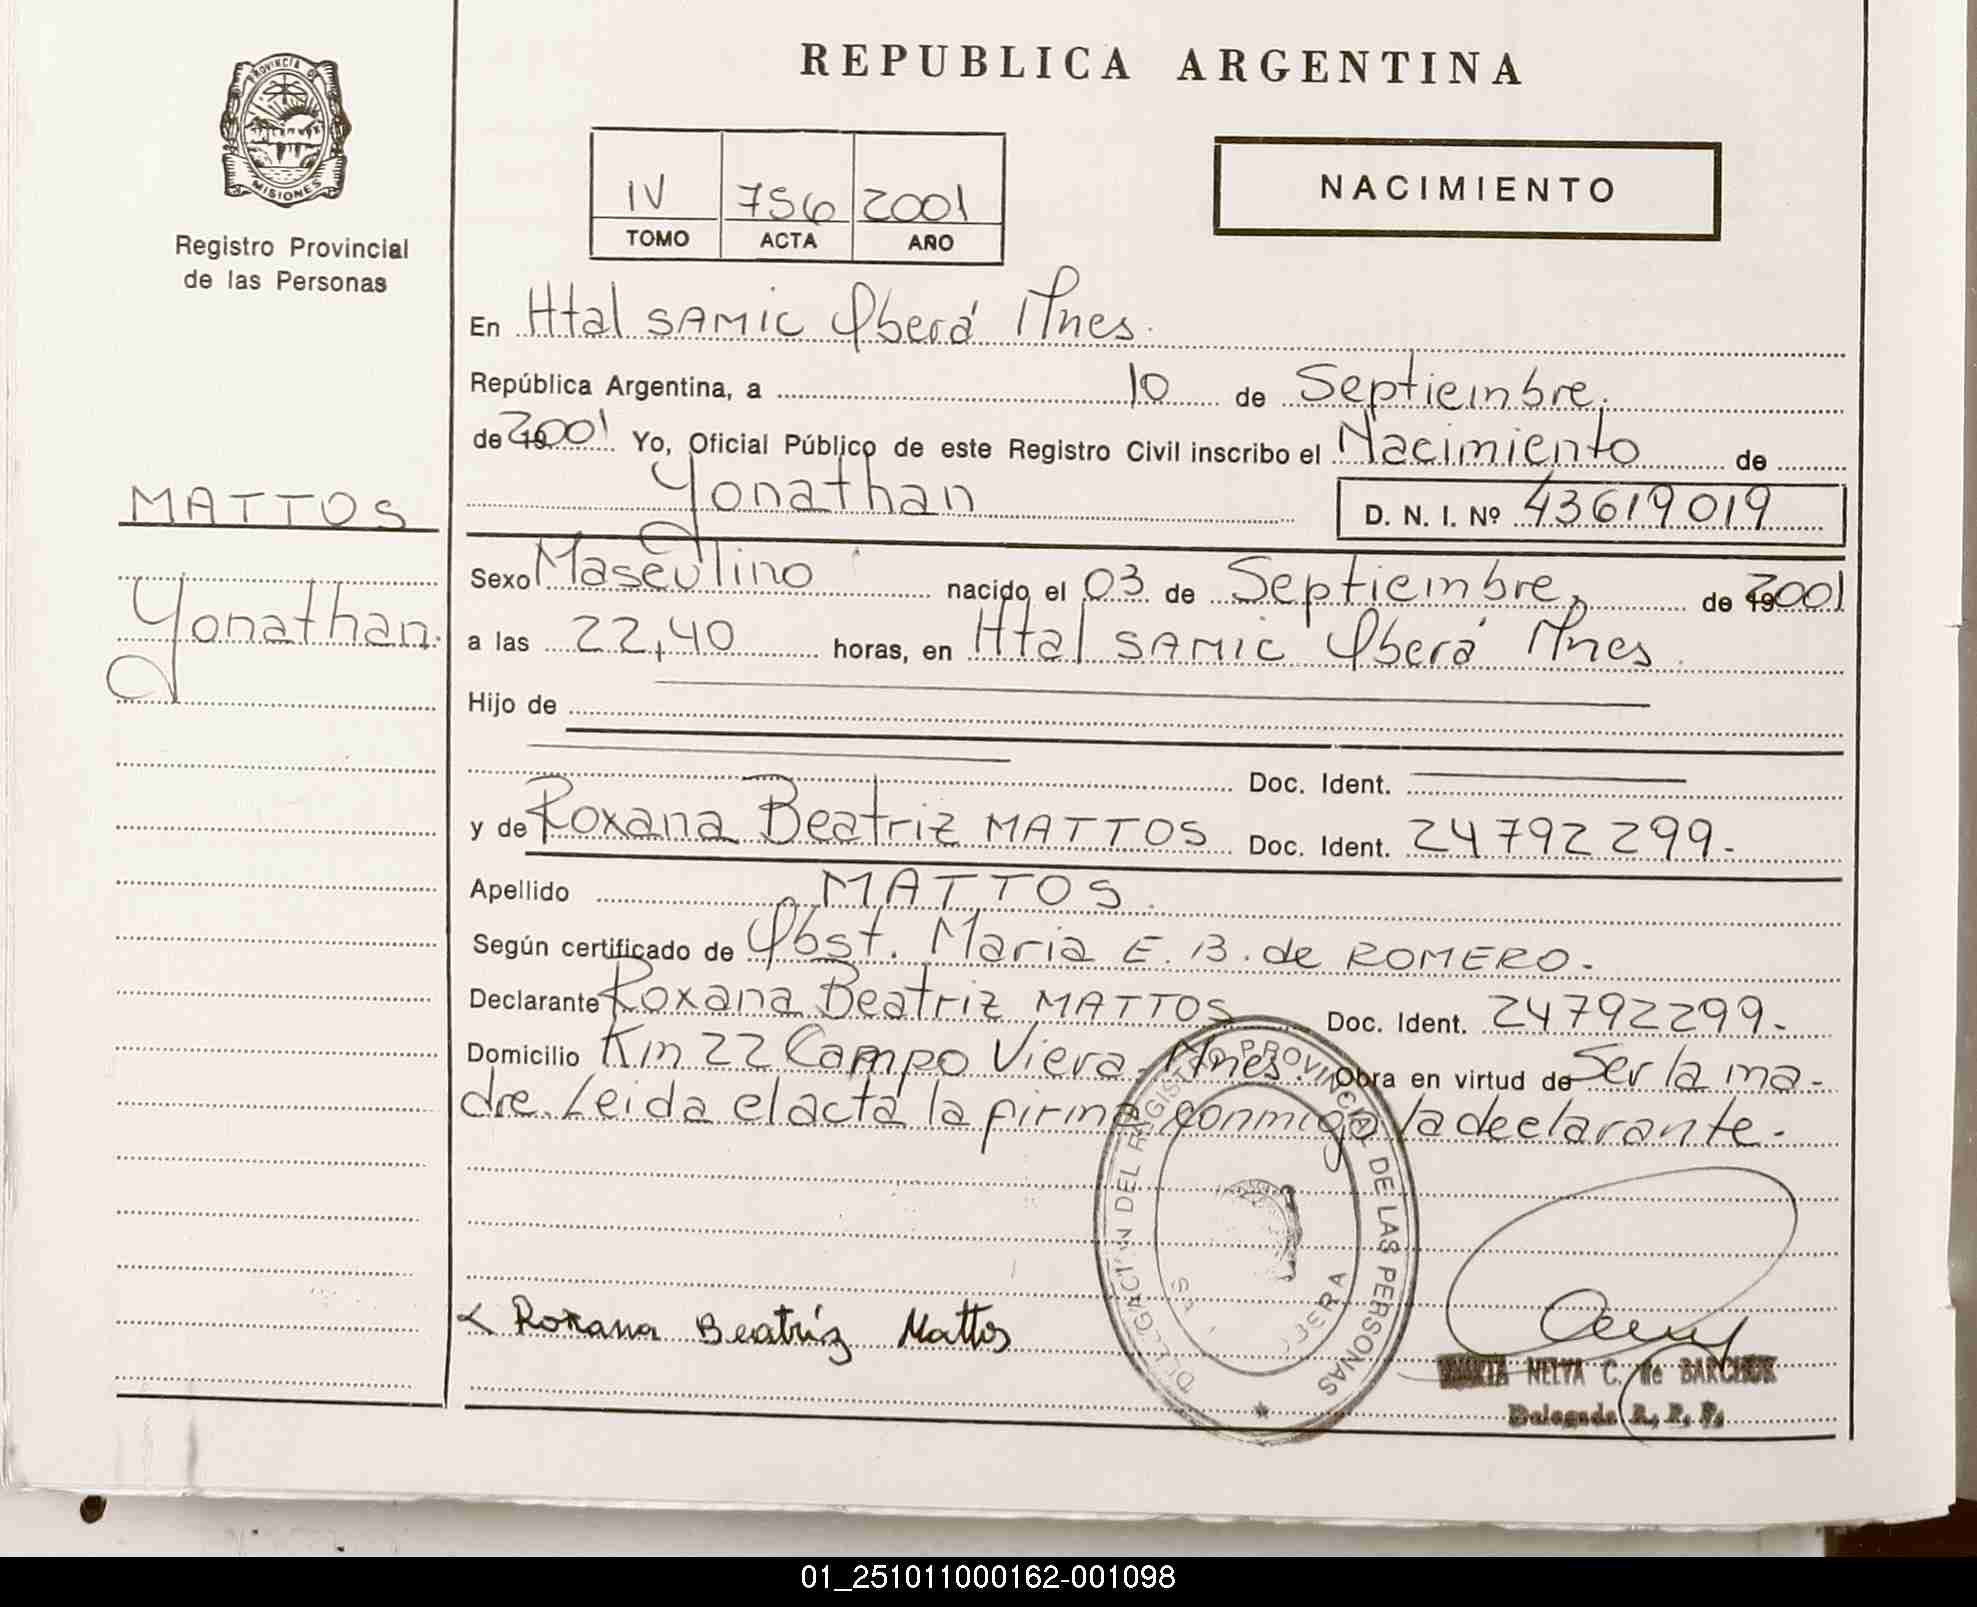 REPUBLICA ARGENTINA
PROVINCIA DE
MISIONES
Registro Provincial
de las Personas
IV 756 2001
TOMO ACTA AÑO
NACIMIENTO
En Htal SAMIC Oberá Mnes.
República Argentina, a 10 de Septiembre.
de 2001 Yo, Oficial Público de este Registro Civil inscribo el Nacimiento de
Yonathan D. N. I. Nº 43619019
MATTOS
Yonathan.
Sexo Masculino nacido el 03 de Septiembre, de 2001
a las 22,40 horas, en Htal SAMIC Oberá Mnes.
Hijo de
Doc. Ident.
y de Roxana Beatriz MATTOS Doc. Ident. 24792299.-
Apellido MATTOS.
Según certificado de Obst. Maria E. B. de ROMERO.-
Declarante Roxana Beatriz MATTOS Doc. Ident. 24792299.-
Domicilio Km 22 Campo Viera - Mnes. Obra en virtud de Ser la ma-
dre. Leida el acta la firma conmigo la declarante.-
DELEGACION DEL REGISTRO PROVINCIAL DE LAS PERSONAS
Roxana Beatríz Mattos
MARTA NELVA C. de BARCHUK
Delegada R. P. P.
01_251011000162-001098